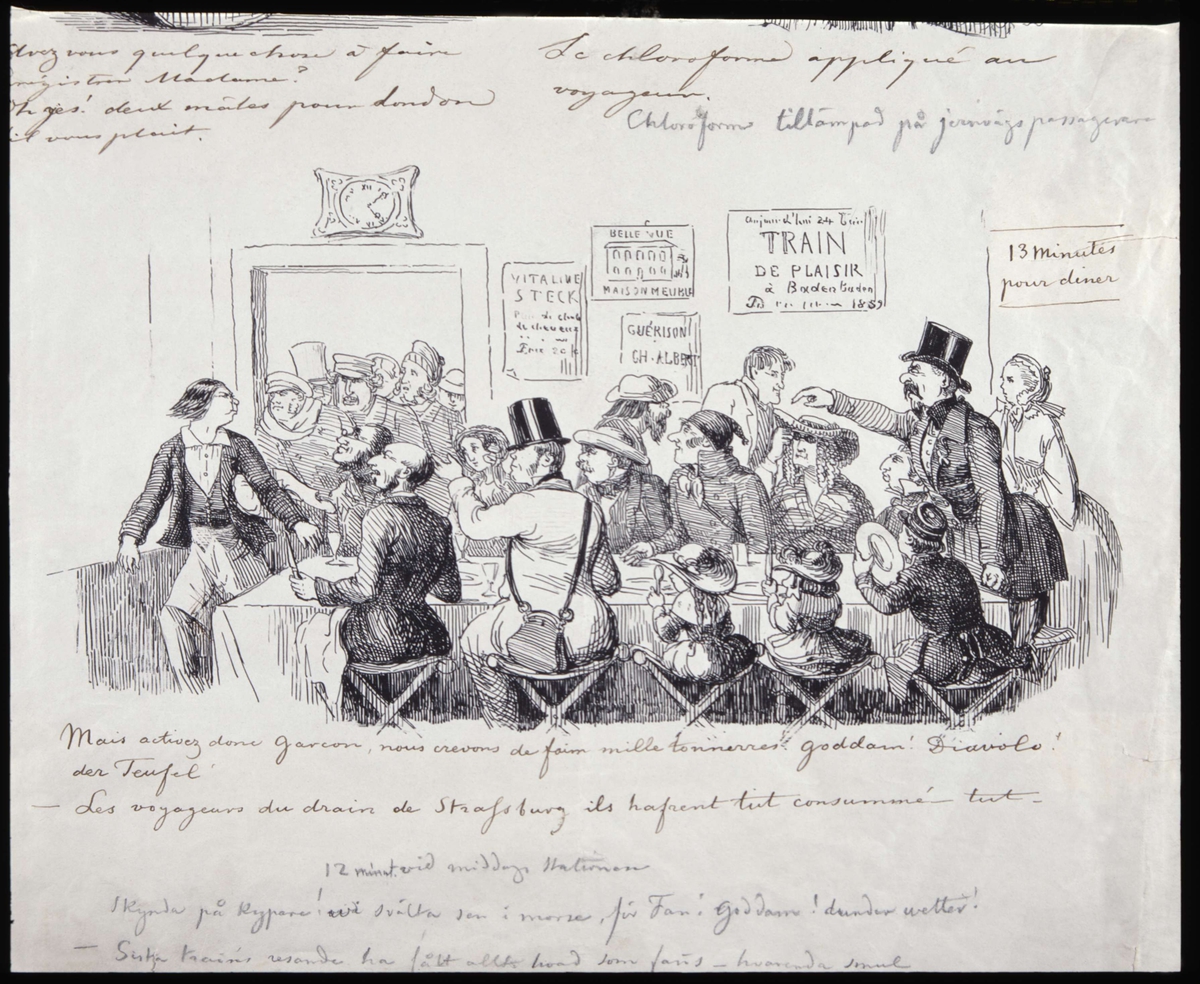 Avez vous quelque chose à faire
régistrer Madame?
Oh yes! deux mâles pour London
s'il vous plait.
Le chloroforme appliqué au
voyageur.
Chloroform tillämpad på jernvägs passagerare
XII
VI
VITALINE
STECK
de cheveux
BELLE VUE
MAISON MEUBLE
GUÉRISON
CH. ALBERT
Aujourd'hui 24 Juin
TRAIN
DE PLAISIR
à Baden Baden
1859
13 minutes
pour diner
Mais activez donc garcon, nous crevons de faim mille tonnerres! goddam! Diavolo!
der Teufel
— Les voyageurs du drain de Strassburg ils hafrent tut consummé tut —
12 minut. vid middags stationen
Skynda på kypare! svälta sen i morse, för Fan! Goddam! dunder wetter!
— Sista trains resande ha fått allt hvad som fans — hvarenda smul